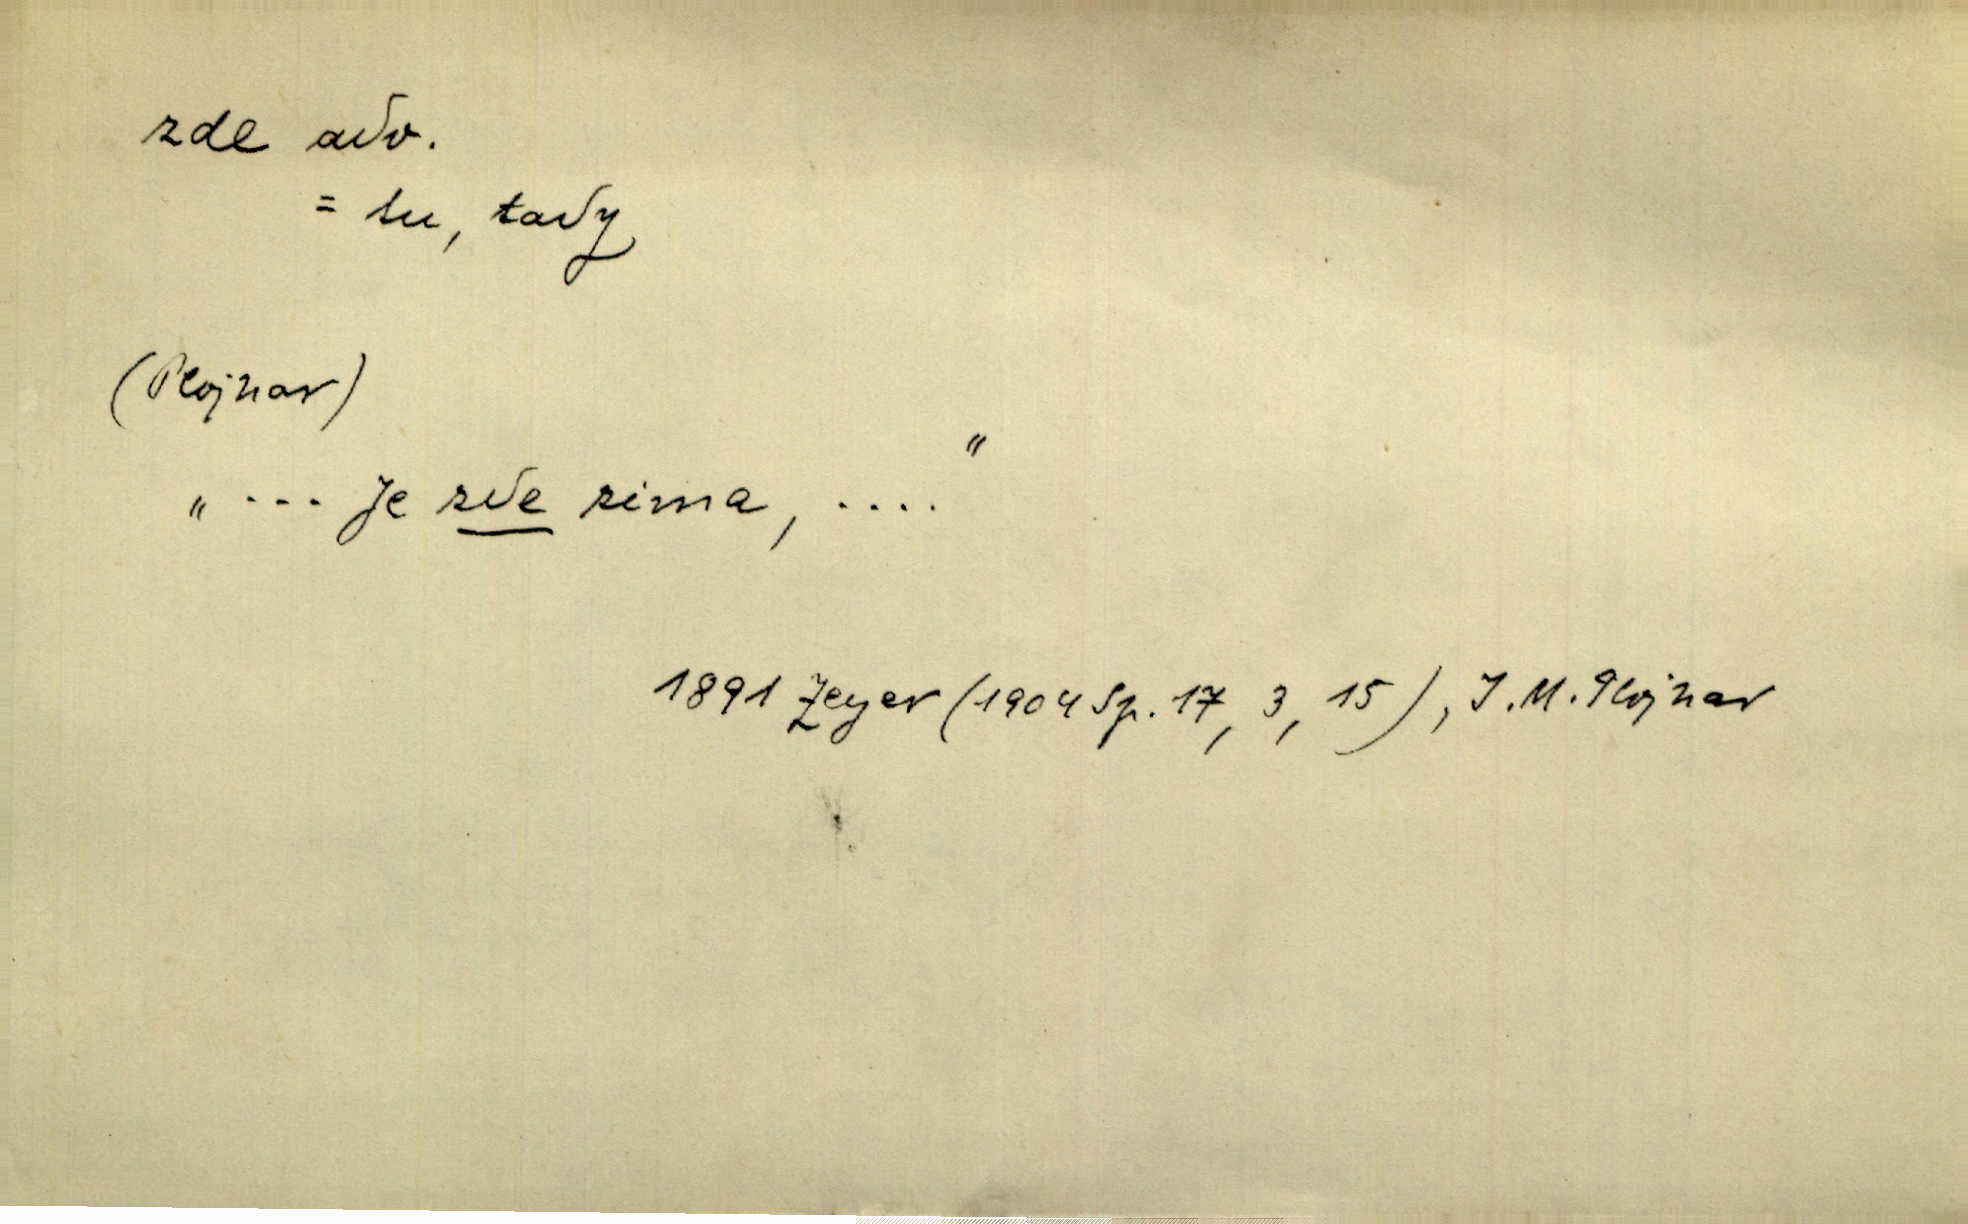 zde adv.
= tu, tady
(Plojhar)
„ --- Je zde zima, .... "
1891 Zeyer (1904 Sp. 17, 3, 15), J.M. Plojhar